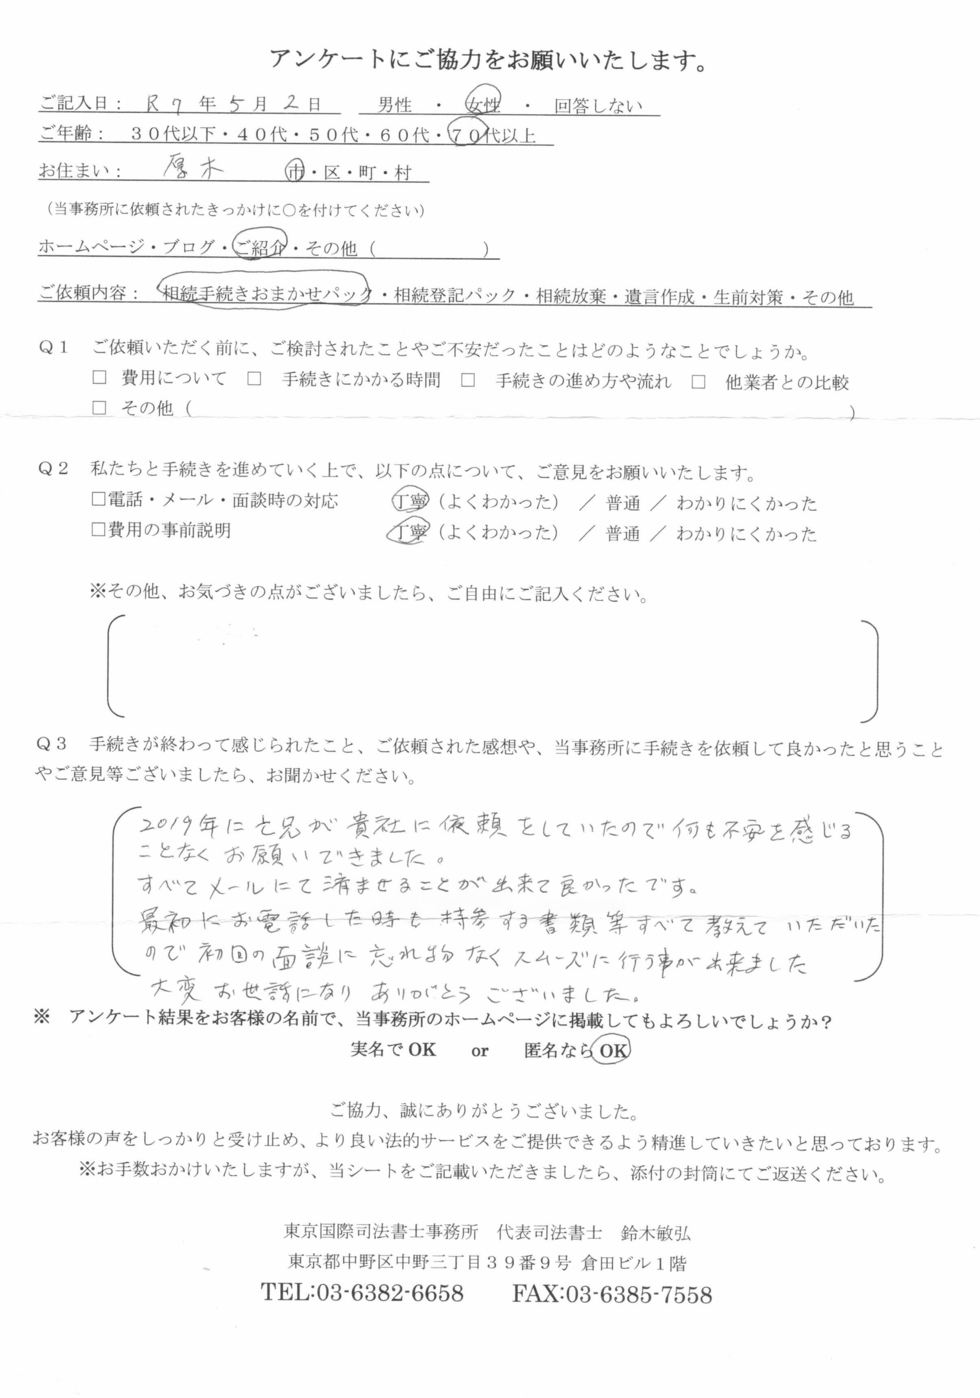 アンケートにご協力をお願いいたします。
ご記入日： R7 年 5 月 2 日　男性 ・ 女性 ・ 回答しない
ご年齢： 30代以下・40代・50代・60代・70代以上
お住まい： 厚木 市・区・町・村
（当事務所に依頼されたきっかけに○を付けてください）
ホームページ・ブログ・ご紹介・その他（　　　　　　）
ご依頼内容： 相続手続きおまかせパック・相続登記パック・相続放棄・遺言作成・生前対策・その他
Q1　ご依頼いただく前に、ご検討されたことやご不安だったことはどのようなことでしょうか。
□ 費用について　□ 手続きにかかる時間　□ 手続きの進め方や流れ　□ 他業者との比較
□ その他（　　　　　　　　　　　　）
Q2　私たちと手続きを進めていく上で、以下の点について、ご意見をお願いいたします。
□電話・メール・面談時の対応　丁寧（よくわかった） ／ 普通 ／ わかりにくかった
□費用の事前説明　丁寧（よくわかった） ／ 普通 ／ わかりにくかった
※その他、お気づきの点がございましたら、ご自由にご記入ください。
Q3　手続きが終わって感じられたこと、ご依頼された感想や、当事務所に手続きを依頼して良かったと思うこと
やご意見等ございましたら、お聞かせください。
2019年に亡兄が貴社に依頼をしていたので何も不安を感じる
ことなくお願いできました。
すべてメールにて済ませることが出来て良かったです。
最初にお電話した時も持参する書類等すべて教えていただいた
ので初回の面談に忘れ物なくスムーズに行う事が出来ました
大変お世話になりありがとうございました。
※　アンケート結果をお客様の名前で、当事務所のホームページに掲載してもよろしいでしょうか？
実名でOK　or　匿名ならOK
ご協力、誠にありがとうございました。
お客様の声をしっかりと受け止め、より良い法的サービスをご提供できるよう精進していきたいと思っております。
※お手数おかけいたしますが、当シートをご記載いただきましたら、添付の封筒にてご返送ください。
東京国際司法書士事務所　代表司法書士　鈴木敏弘
東京都中野区中野三丁目39番9号 倉田ビル1階
TEL:03-6382-6658　FAX:03-6385-7558